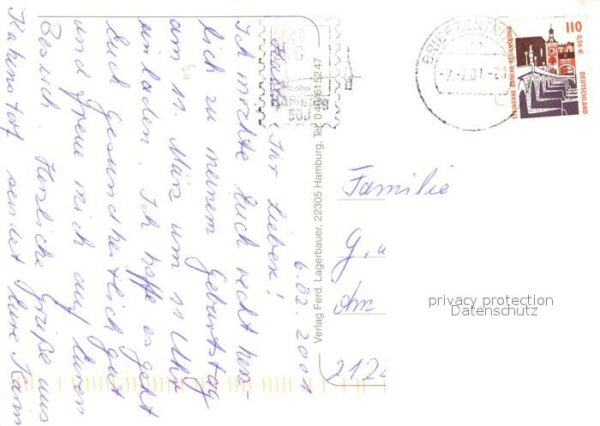 6.02.2001
Hallo Ihr Lieben!
Ich möchte Euch recht herz-
lich zu meinem Geburtstag
am So 11. März um 11 Uhr
einladen. Ich hoffe es geht
Euch gesundheitlich gut
und freue mich auf Euren
Besuch. Herzliche Grüße aus
sendet Eure Karin
Verlag Ferd. Lagerbauer, 22305 Hamburg, Tel. 040/615247
BRIEFZENTRUM
-7.-2.01-2
110
0,56€
STEINERNE BRÜCKE REGENSBURG
DEUTSCHLAND
Familie
G
Am
2122
privacy protection
Datenschutz